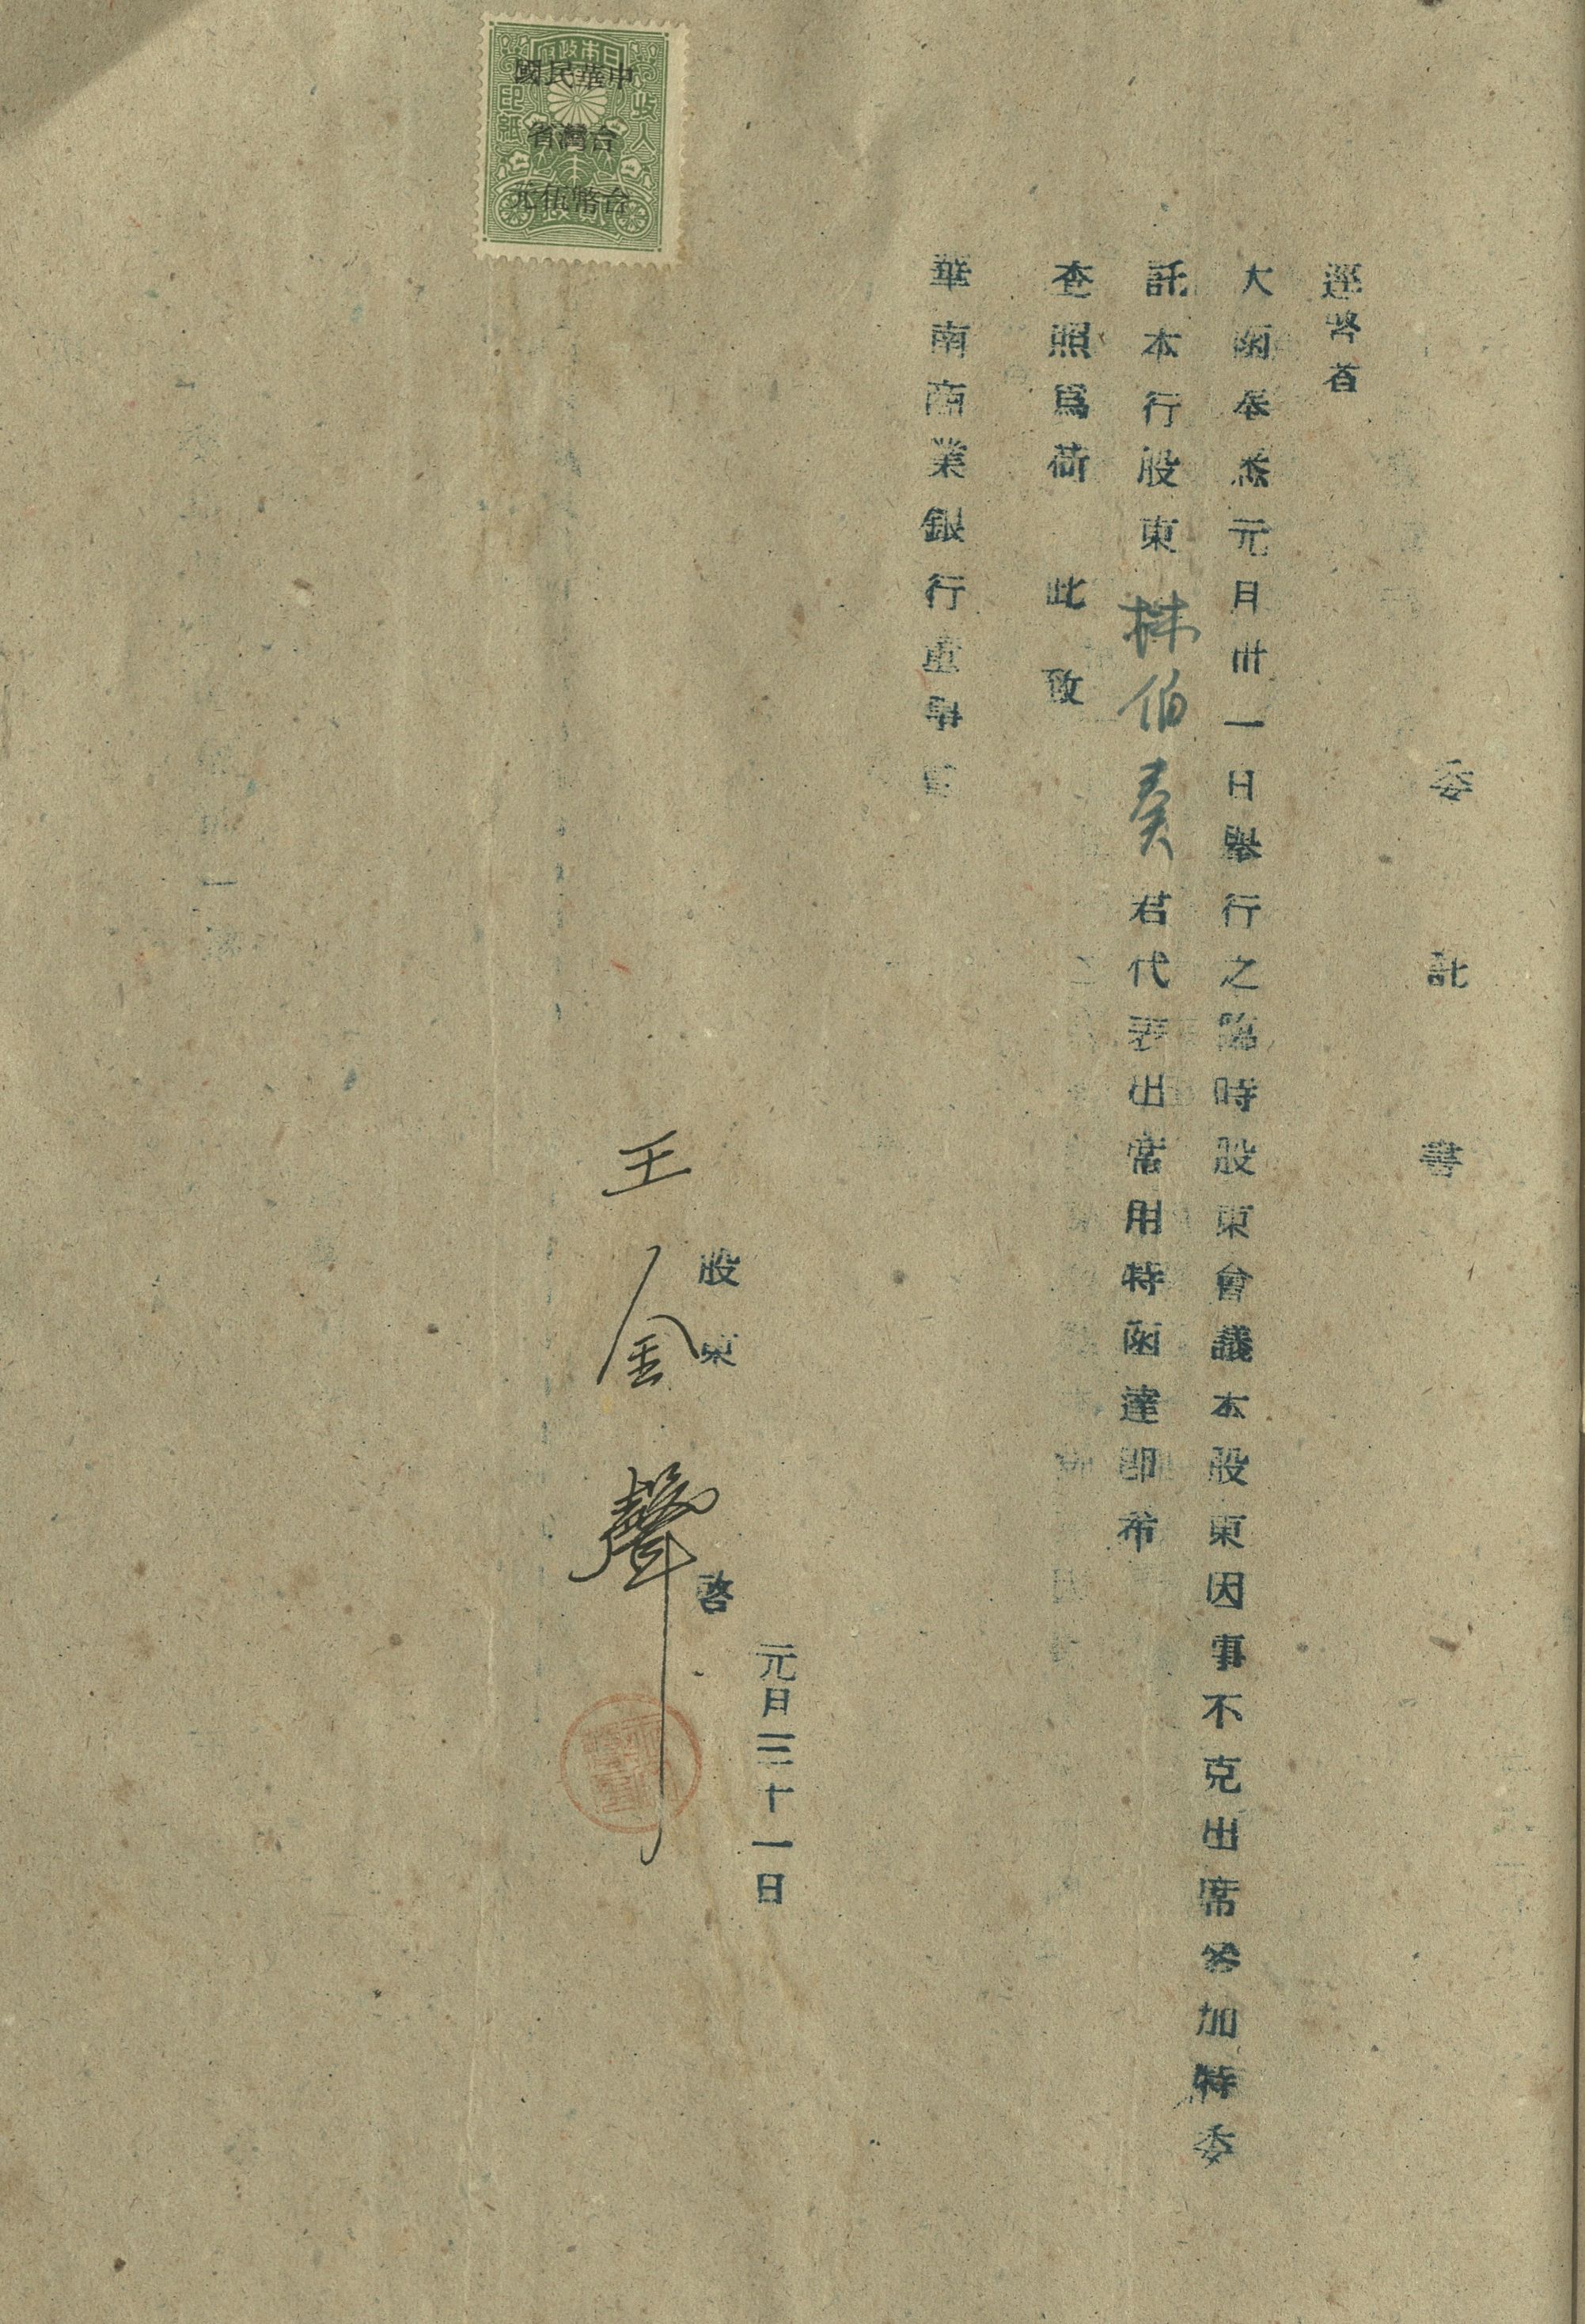 委託書
逕啓者
大函奉悉元月卅一日舉行之臨時股東會議本股東因事不克出席參加特委
託本行股東林伯奏君代表出席用特函達即希
查照爲荷 此致
華南商業銀行董事會
元月三十一日
股東 啓
王金聲
日本政府
收入印紙
中華民國
台灣省
台幣伍元